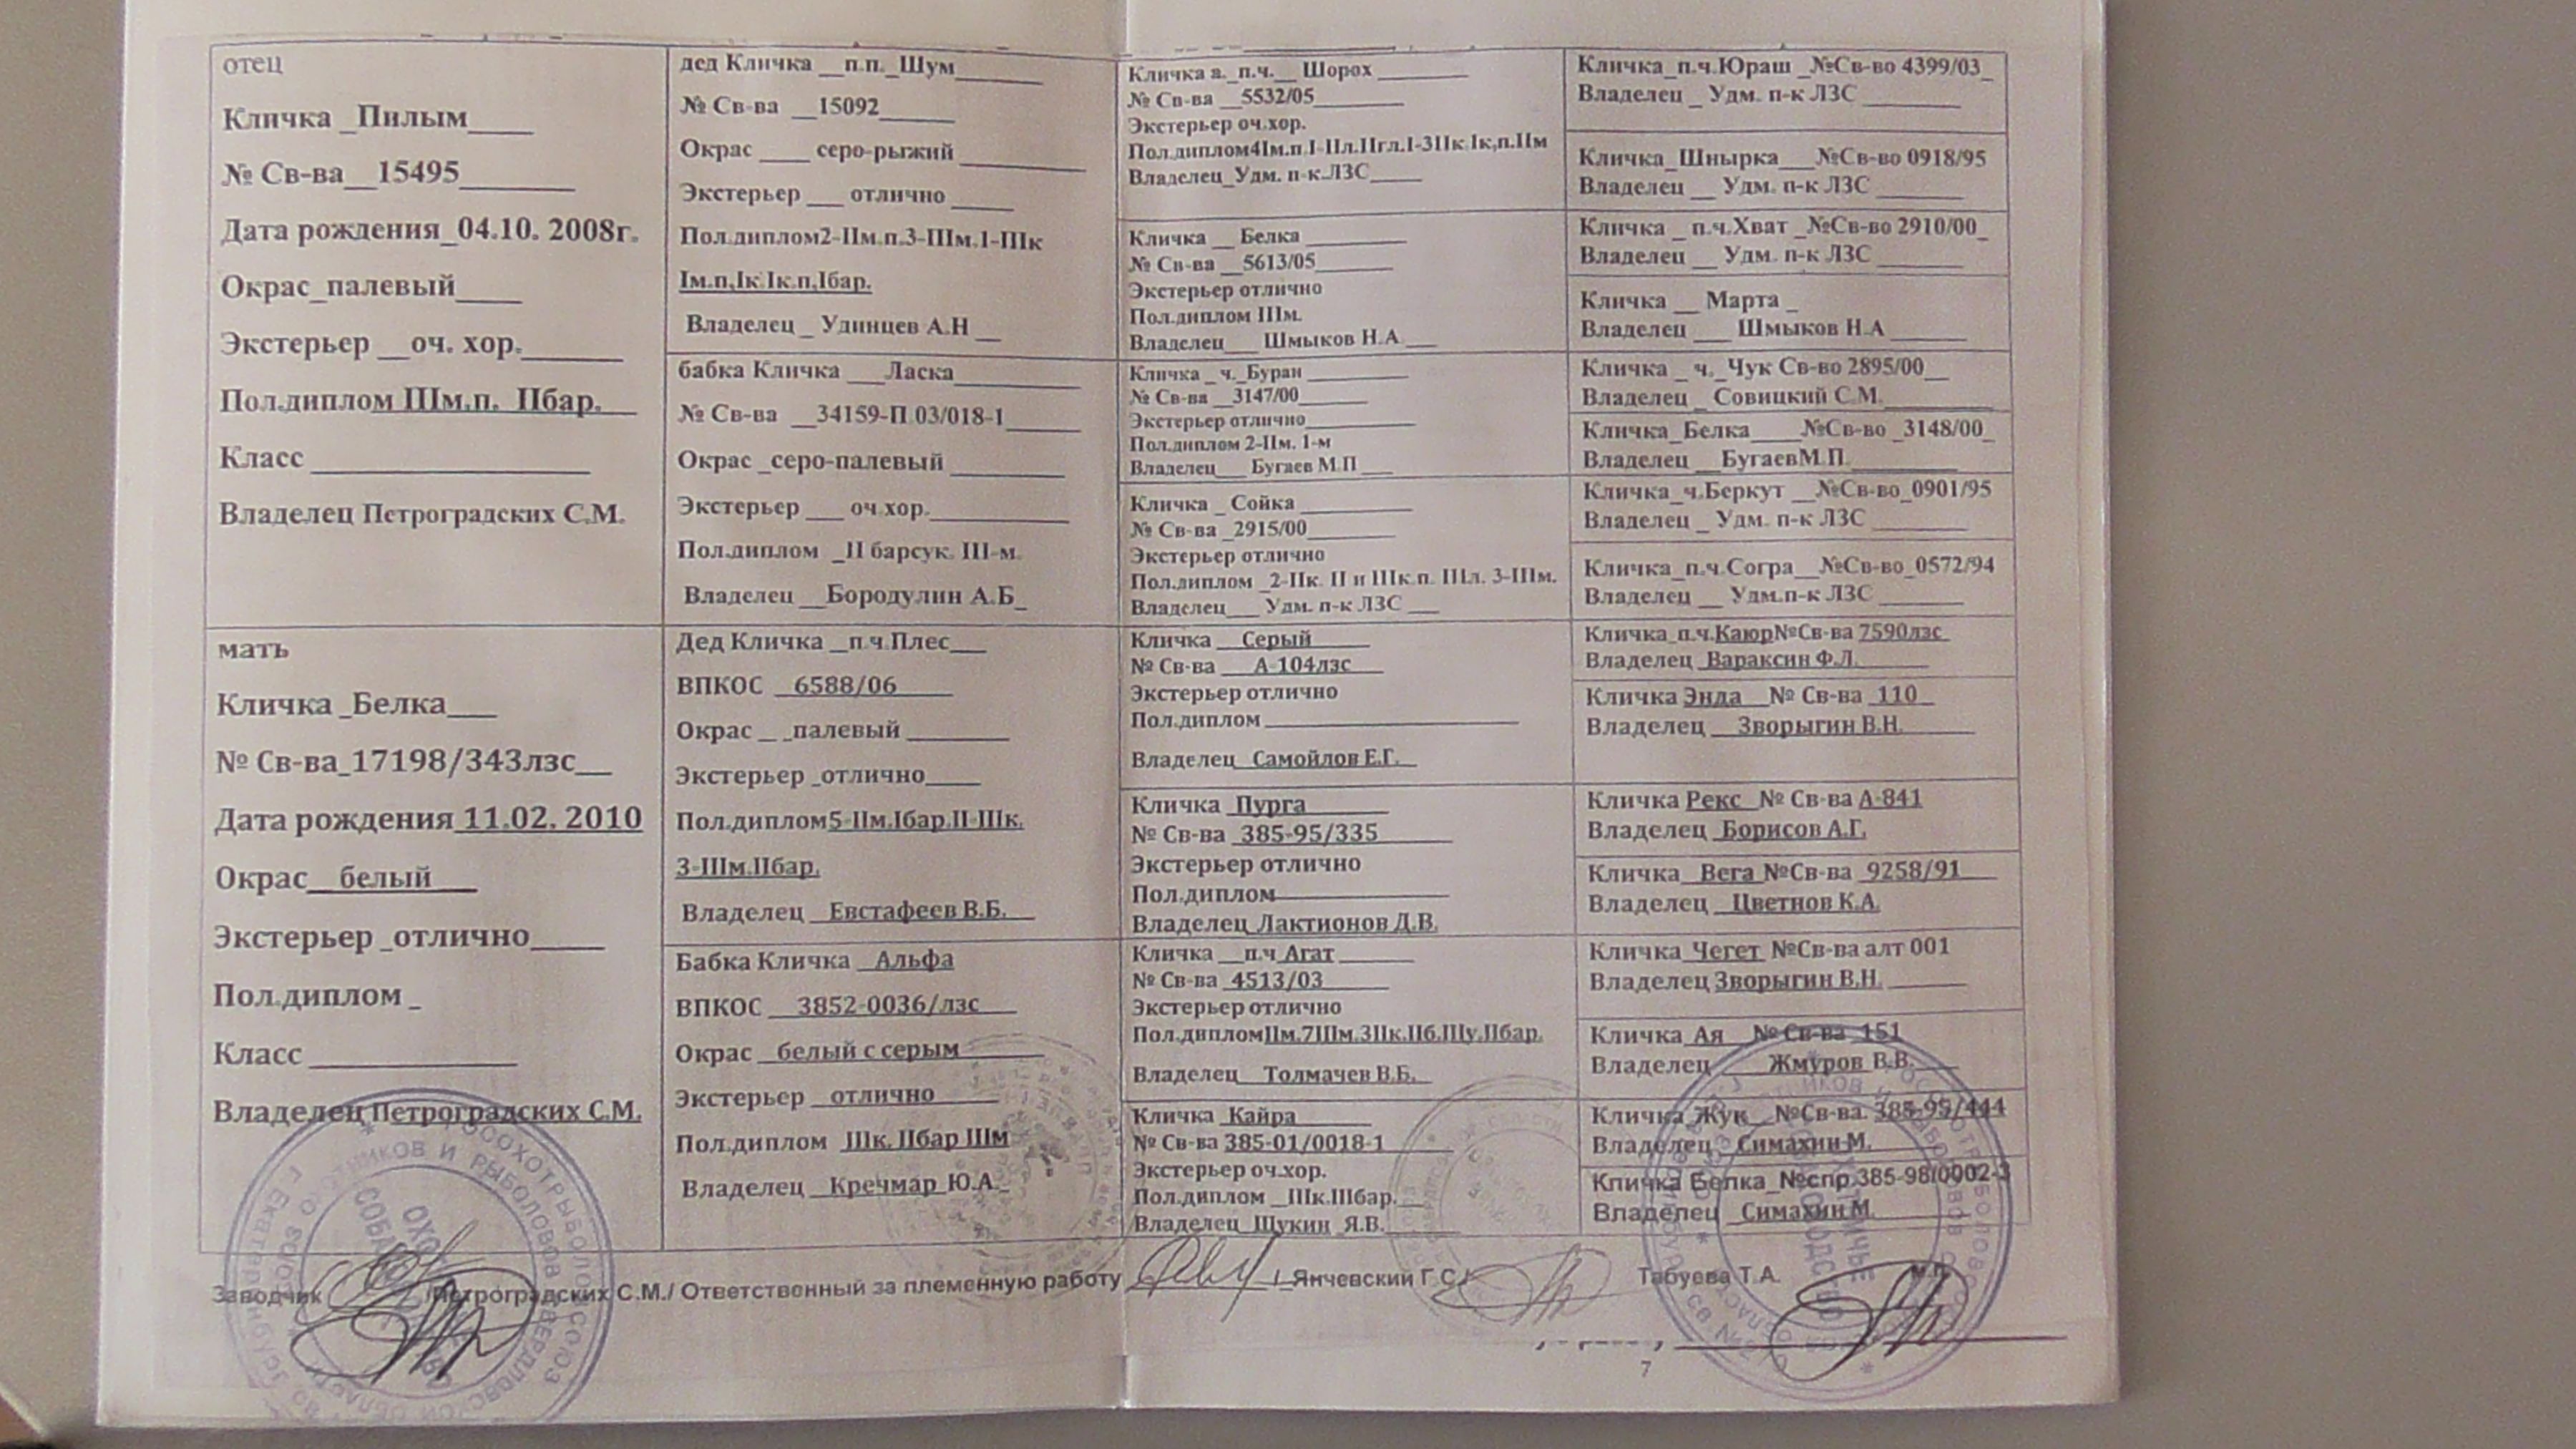 отец
Кличка _Пилым____
№ Св-ва__15495_______
Дата рождения_04.10. 2008г.
Окрас_палевый____
Экстерьер __оч. хор.______
Пол.диплом IIIм.п. IIбар.
Класс _________________
Владелец Петроградских С.М.
мать
Кличка _Белка___
№ Св-ва_17198/343лзс__
Дата рождения 11.02. 2010
Окрас__белый___
Экстерьер _отлично_____
Пол.диплом _
Класс _____________
Владелец Петроградских С.М.
дед Кличка __п.п._Шум_______
№ Св-ва __15092______
Окрас ____ серо-рыжий __________
Экстерьер ___ отлично _____
Пол.диплом2-IIм.п.3-IIIм.1-IIIк
Iм.п,Iк.Iк.п,Iбар.
Владелец _ Удинцев А.Н __
бабка Кличка ___Ласка__________
№ Св-ва __34159-П 03/018-1______
Окрас _серо-палевый _________
Экстерьер ___ оч.хор.___________
Пол.диплом _II барсук. III-м.
Владелец __Бородулин А.Б_
Дед Кличка __п.ч.Плес___
ВПКОС __6588/06____
Окрас _ _палевый ________
Экстерьер _отлично____
Пол.диплом5-IIм.Iбар.II-IIIк.
3-IIIм.IIбар.
Владелец __Евстафеев В.Б.__
Бабка Кличка _Альфа
ВПКОС __3852-0036/лзс___
Окрас _белый с серым______
Экстерьер _отлично_____
Пол.диплом IIIк. IIбар IIIм
Владелец __Кречмар Ю.А._
Кличка а._п.ч.__ Шорох ________
№ Св-ва __5532/05________
Экстерьер оч.хор.
Пол.диплом4Iм.п.I-IIл.IIгл.I-3IIк.Iк,п.IIм
Владелец_Удм. п-к.ЛЗС_____
Кличка __ Белка _________
№ Св-ва __5613/05_______
Экстерьер отлично
Пол.диплом IIIм.
Владелец___ Шмыков Н.А ___
Кличка _ч._Буран _________
№ Св-ва __3147/00_______
Экстерьер отлично__________
Пол.диплом 2-IIм. 1-м
Владелец___ Бугаев М.П ___
Кличка _ Сойка __________
№ Св-ва _2915/00________
Экстерьер отлично
Пол.диплом _2-IIк. II и IIIк.п. IIIл. 3-IIIм.
Владелец___ Удм. п-к ЛЗС ___
Кличка __Серый_____
№ Св-ва ___А-104лзс___
Экстерьер отлично
Пол.диплом ____________________
Владелец_Самойлов Е.Г._
Кличка _Пурга_______
№ Св-ва _385-95/335______
Экстерьер отлично
Пол.диплом______________
Владелец Лактионов Д.В.
Кличка __п.ч Агат _______
№ Св-ва _4513/03_____
Экстерьер отлично
Пол.дипломIIм.7IIIм.3IIк.IIб.IIIу.IIбар.
Владелец__Толмачев В.Б._
Кличка _Кайра______
№ Св-ва 385-01/0018-1_____
Экстерьер оч.хор.
Пол.диплом _IIIк.IIIбар.__
Владелец_Щукин Я.В._____
Кличка_п.ч.Юраш _№Св-во 4399/03_
Владелец _ Удм. п-к ЛЗС ________
Кличка_Шнырка___№Св-во 0918/95
Владелец __ Удм. п-к ЛЗС _______
Кличка _ п.ч.Хват _№Св-во 2910/00_
Владелец __ Удм. п-к ЛЗС _______
Кличка __ Марта _
Владелец ___ Шмыков Н.А ______
Кличка _ ч._Чук Св-во 2895/00__
Владелец _ Совицкий С.М._________
Кличка_Белка____№Св-во _3148/00_
Владелец __БугаевМ.П._________
Кличка_ч.Беркут __№Св-во_0901/95
Владелец _ Удм. п-к ЛЗС ________
Кличка_п.ч.Согра__№Св-во_0572/94
Владелец __ Удм.п-к ЛЗС _______
Кличка_п.ч.Каюр№Св-ва 7590лзс
Владелец_Вараксин Ф.Л.______
Кличка Энда__№ Св-ва_110_
Владелец __Зворыгин В.Н.______
Кличка Рекс_№ Св-ва А-841
Владелец_Борисов А.Г.
Кличка__Вега_№Св-ва_9258/91___
Владелец __Цветнов К.А.
Кличка Чегет №Св-ва алт 001
Владелец Зворыгин В.Н._______
Кличка Ая__№ Св-ва_151
Владелец____Жмуров В.В.____
Кличка Жук__№Св-ва. 385-95/444
Владелец_Симахин М.
Кличка Белка_№спр.385-98/0002-3
Владелец_Симахин М.
Заводчик /Петроградских С.М./ Ответственный за племенную работу Янчевский Г.С./ Табуева Т.А. м.п.
7